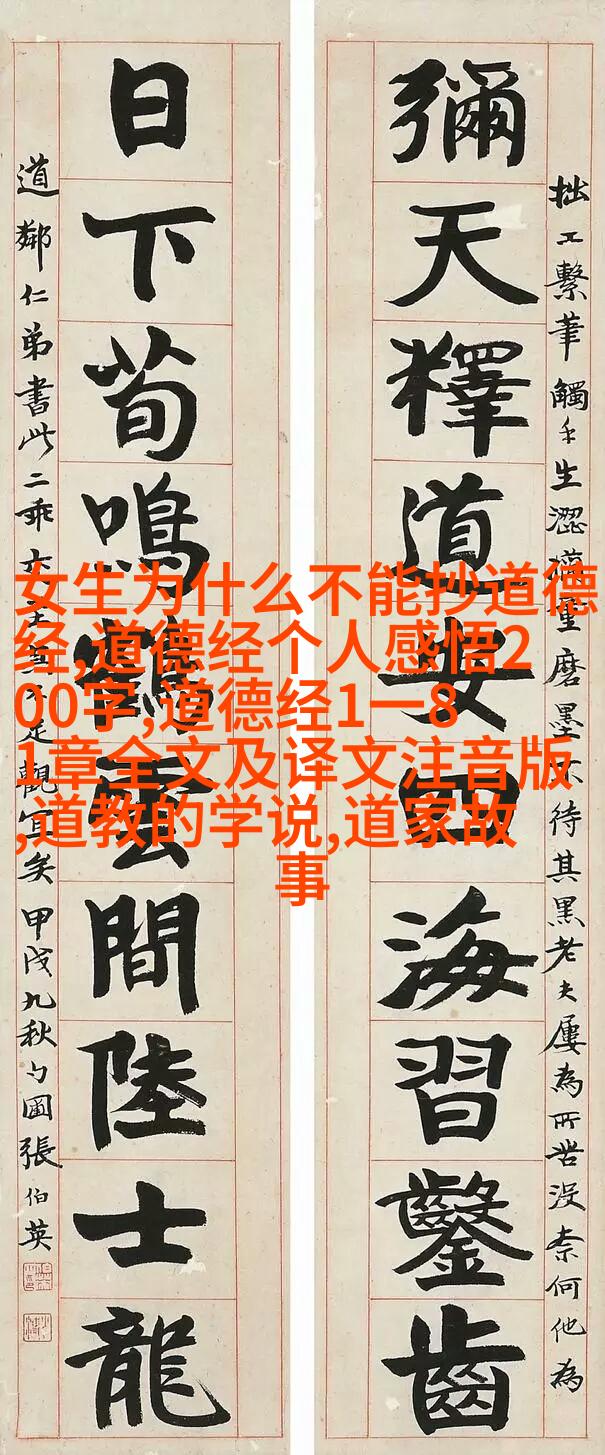 彌天釋道安四海習鑿齒
拙工繫筆觸手生澀凍重磨墨不待其黑老夫屢為所苦沒柰何他為
日下荀鳴鶴雲間陸士龍
道鄰仁弟書此二乘
甲戌九秋勺圃張伯英
女生为什么不能抄道德
经,道德经个人感悟2
00字,道德经1一8
1章全文及译文注音版
,道教的学说,道家故
事